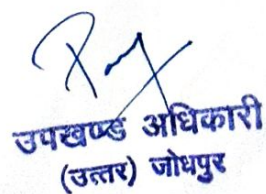 उपखण्ड अधिकारी
(उत्तर) जोधपुर